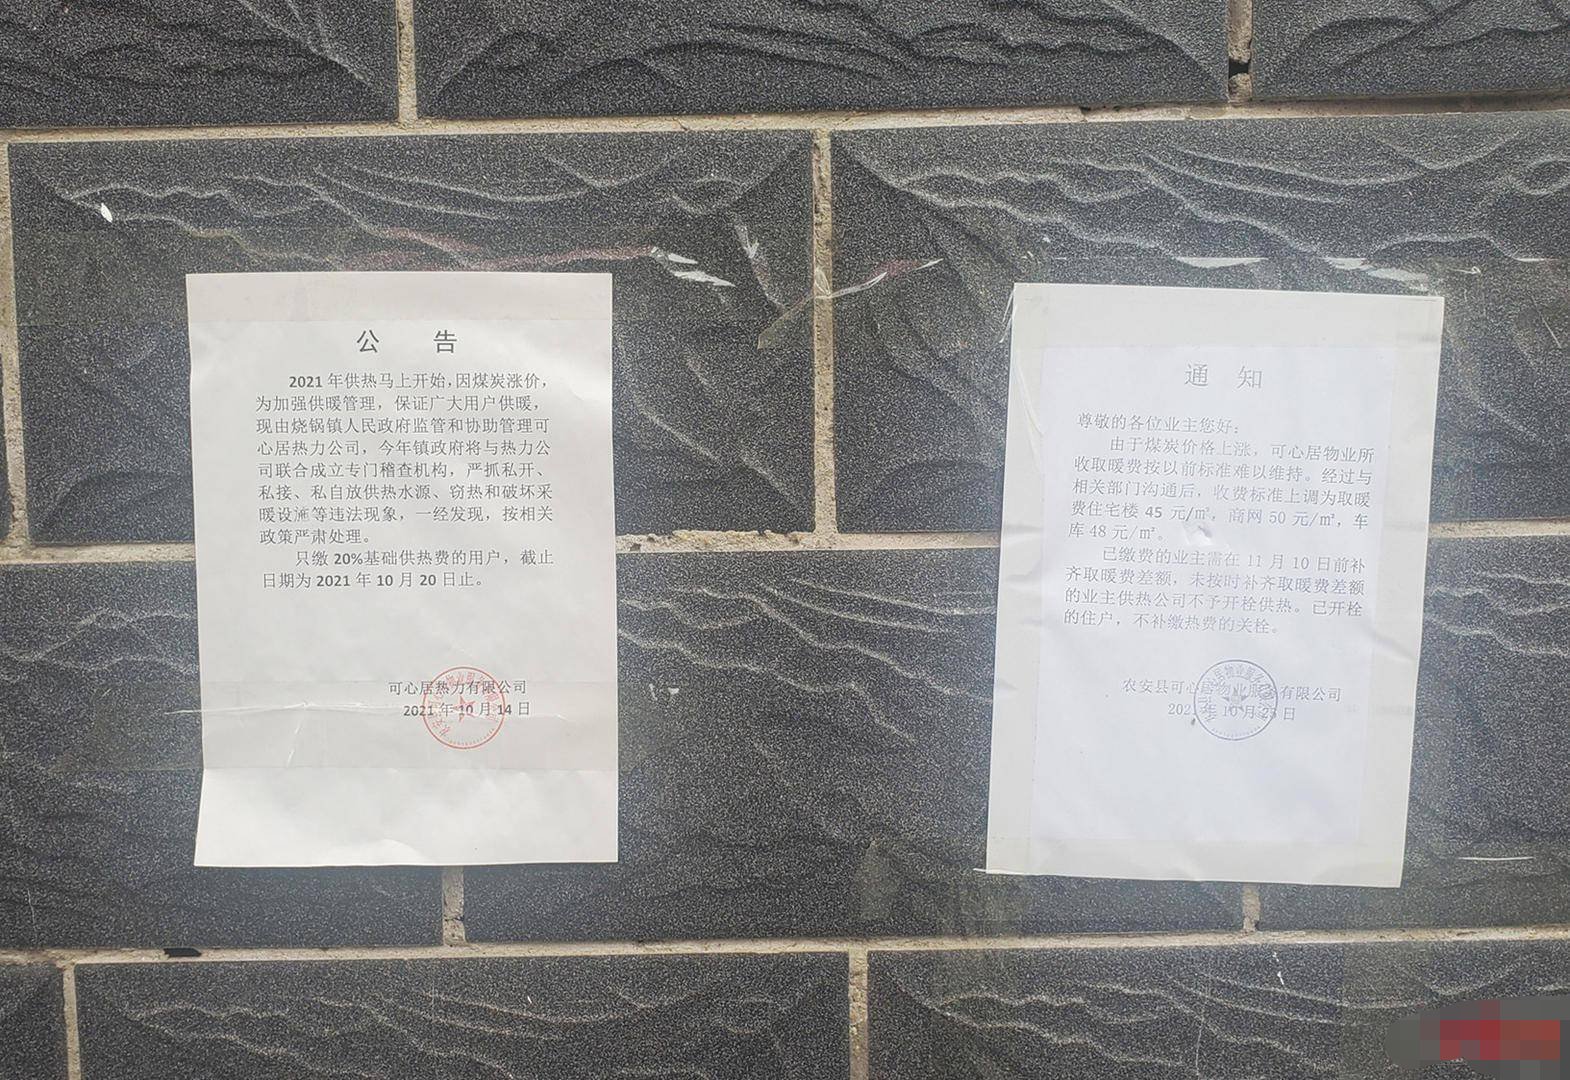 公 告
2021 年供热马上开始,因煤炭涨价,
为加强供暖管理，保证广大用户供暖，
现由烧锅镇人民政府监管和协助管理可
心居热力公司，今年镇政府将与热力公
司联合成立专门稽查机构，严抓私开、
私接、私自放供热水源、窃热和破坏采
暖设施等违法现象，一经发现，按相关
政策严肃处理。
只缴 20%基础供热费的用户，截止
日期为 2021 年 10 月 20 日止。
可心居热力有限公司
2021 年 10 月 14 日
通 知
尊敬的各位业主您好：
由于煤炭价格上涨，可心居物业所
收取暖费按以前标准难以维持。经过与
相关部门沟通后，收费标准上调为取暖
费住宅楼 45 元/㎡，商网 50 元/㎡，车
库 48 元/㎡。
已缴费的业主需在 11 月 10 日前补
齐取暖费差额，未按时补齐取暖费差额
的业主供热公司不予开栓供热。已开栓
的住户，不补缴热费的关栓。
农安县可心居物业服务有限公司
2021 年 10 月 25 日